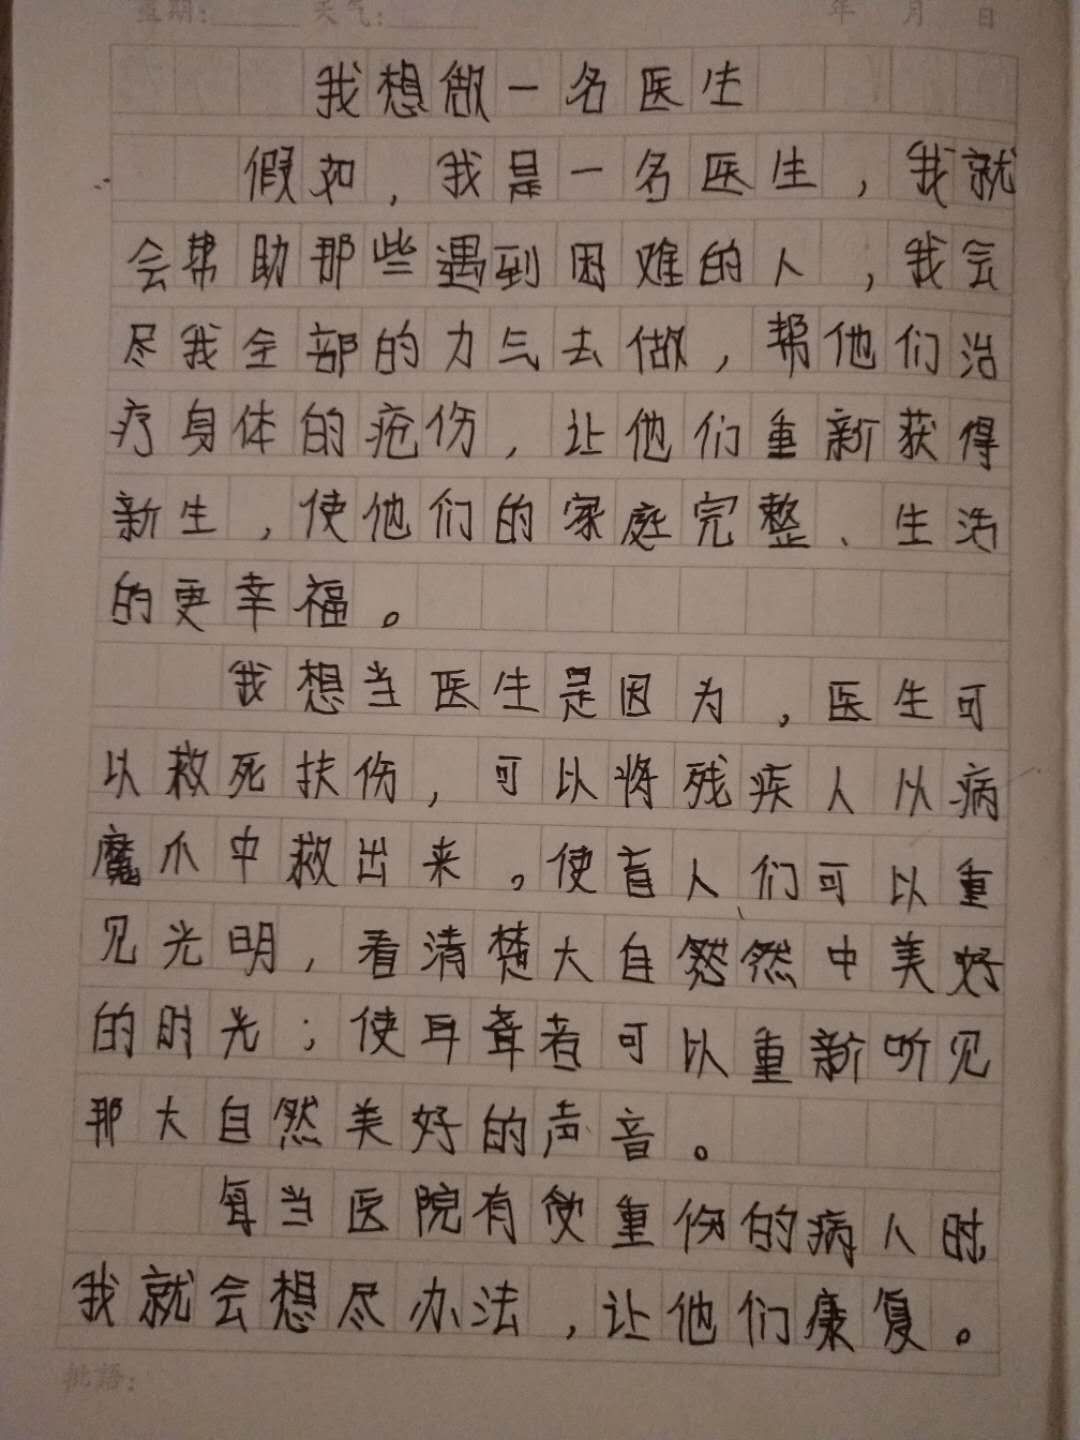 星期: 天气: 年 月 日
我想做一名医生
假如，我是一名医生，我就
会帮助那些遇到困难的人，我会
尽我全部的力气去做，帮他们治
疗身体的疮伤，让他们重新获得
新生，使他们的家庭完整、生活
的更幸福。
我想当医生是因为，医生可
以救死扶伤，可以将残疾人从病
魔爪中救出来。使盲人们可以重
见光明，看清楚大自然中美好
的时光；使耳聋者可以重新听见
那大自然美好的声音。
每当医院有受重伤的病人时
我就会想尽办法，让他们康复。
批语: